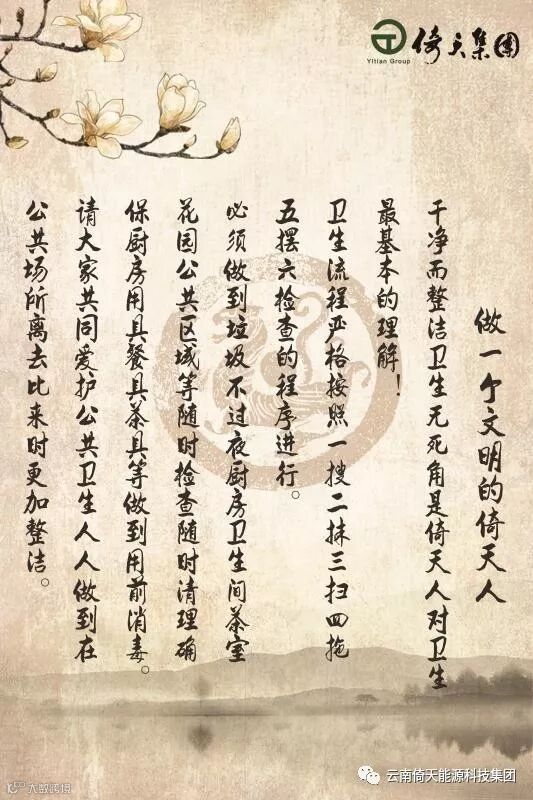 倚天集团
Yitian Group
做一个文明的倚天人
干净而整洁卫生无死角是倚天人对卫生
最基本的理解！
卫生流程严格按照一搜二抹三扫四拖
五摆六检查的程序进行。
必须做到垃圾不过夜厨房卫生间茶室
花园公共区域等随时检查随时清理确
保厨房用具餐具茶具等做到用前消毒。
请大家共同爱护公共卫生人人做到在
公共场所离去比来时更加整洁。
大数跨境
云南倚天能源科技集团